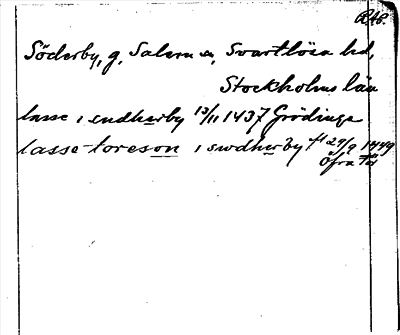 Söderby, g, Salem sn, Svartlösa hd,
Stockholms län
lasse i sudherby 13/11 1437 Grödinge
lasse toreson i swdherby f1 29/9 1449
Öfra Tör